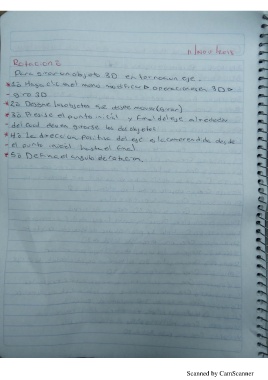 Rotacion
Para girar un objeto 3D en torno a un eje.
*1o Haga clic en el menu modificar operaciones en 3D
- giro 3D
*2o Designe los objetos que (girar)
*3o Precise el punto inicial y final del eje alrededor
del cual deban girarse los objetos
*4o la direccion positiva del eje es la comprendida desde
el punto inicial hasta el final
*5o Defina el angulo de rotacion
Scanned by CamScanner